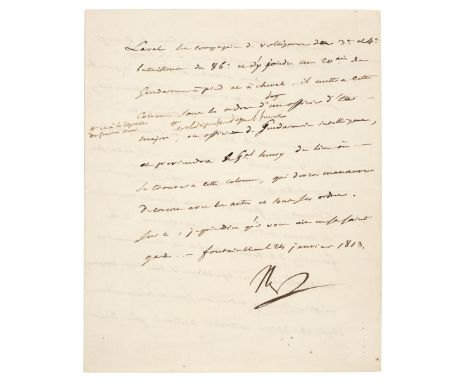 Laval les compagnies de voltigeurs des 3e et 4e
bataillons du 86e et d'y joindre une 20aine de
Gendarmes à pied et à cheval. il mettra cette
Colonne sous les ordres d'un officier d'Etat
major, ou officier de Gendarmerie intelligent,
et préviendra le Gal henry du lieu où
se trouvera cette colonne, qui devra manœuvrer
de concert avec les autres et sous ses ordres.
Sur ce, je prie dieu qu'il vous ait en sa sainte
garde. - fontainebleau 24 janvier 1813.